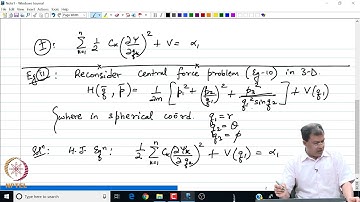 Note1 - Windows Journal
I: ∑_{k=1}^{n} 1/2 C_k (∂Ψ/∂q_k)² + V = α₁
Eg 11: Reconsider central force problem (Eg-10) in 3-D.
H(q̄, p̄) = 1/2m [p₁² + (p₂/q₁)² + p₃²/(q₁² sin² q₂)] + V(q₁)
(where in spherical coord. q₁ = r
q₂ = θ
q₃ = φ
Solⁿ: H.J. Eqⁿ: 1/2 ∑_{k=1}^{n} C_k (∂Ψ_k/∂q_k)² + V(q₁) = α₁
Type here to search